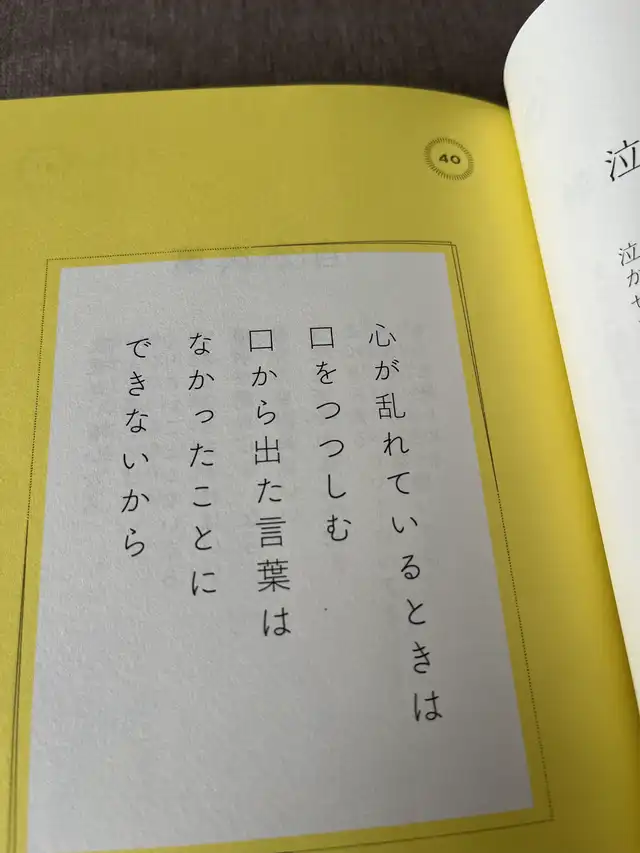 40
心が乱れているときは
口をつつしむ
口から出た言葉は
なかったことに
できないから
泣
泣
が